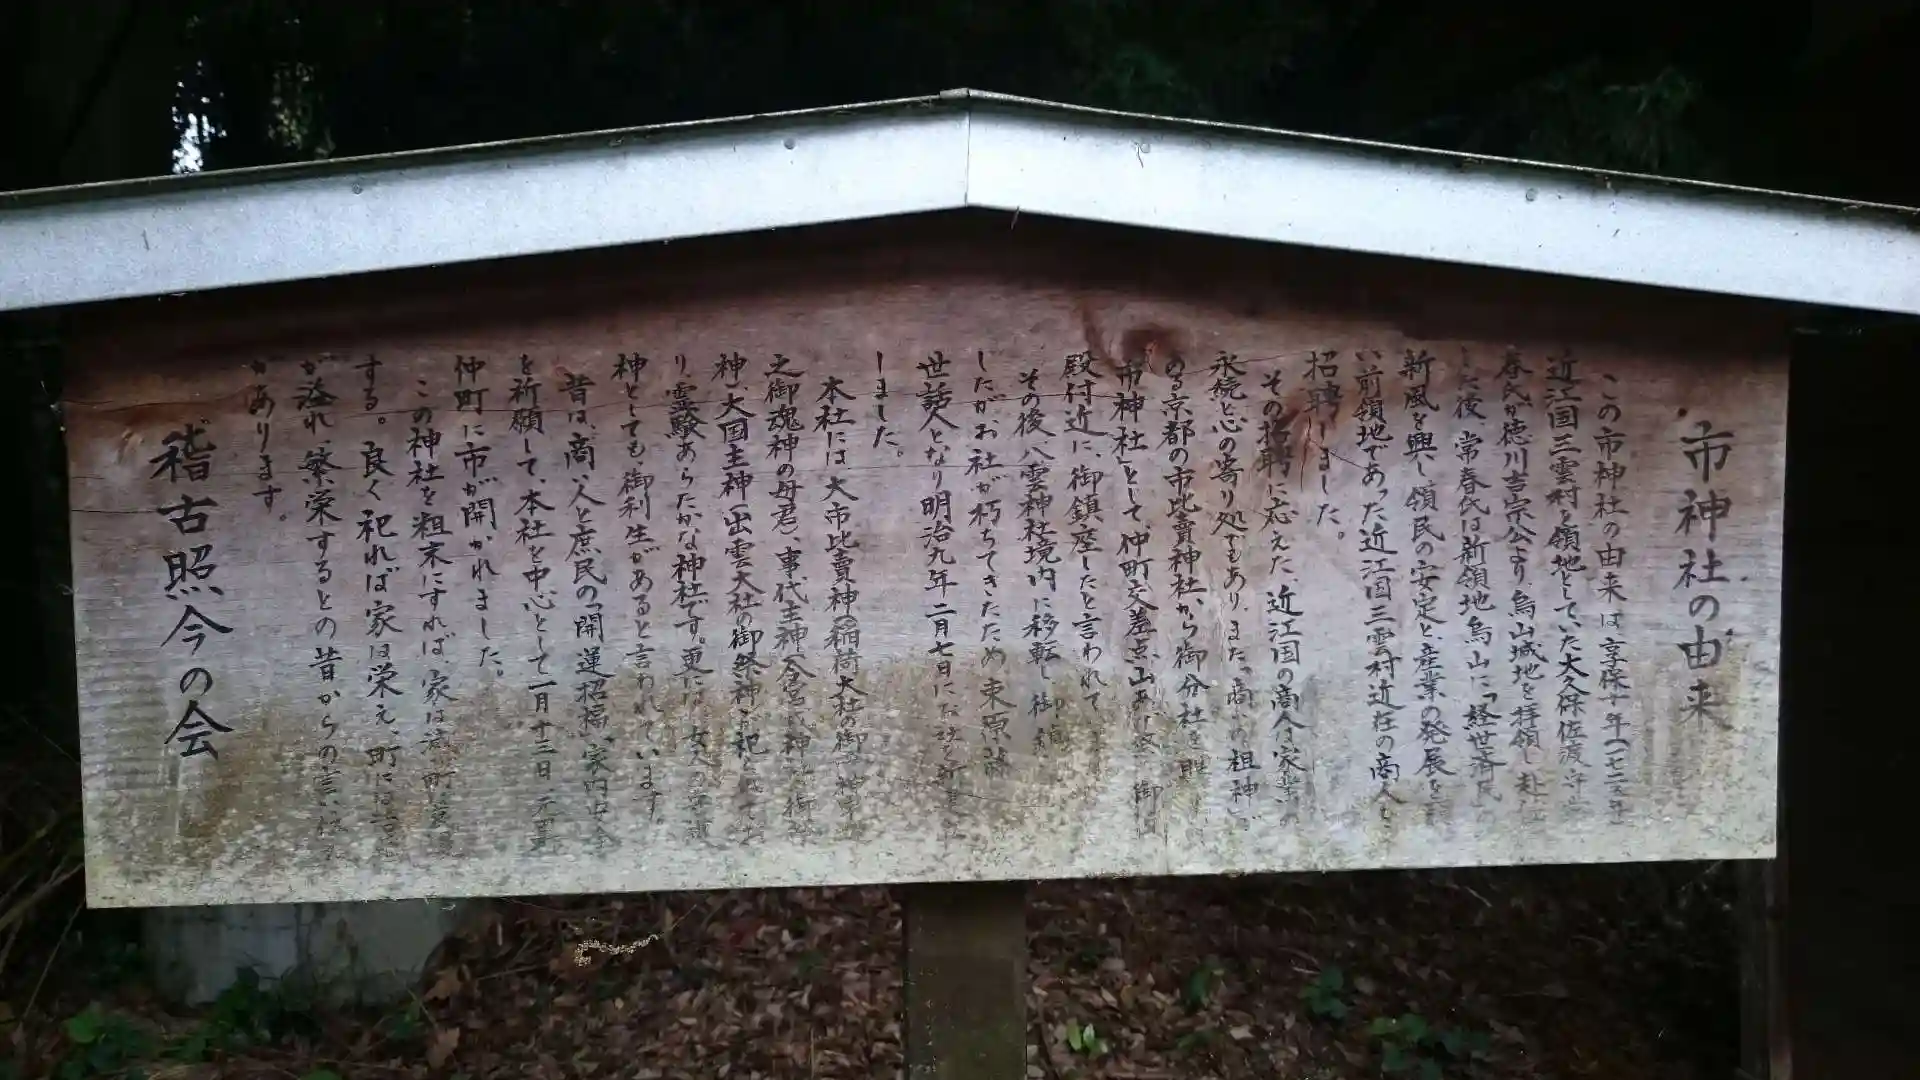 市神社の由来
この市神社の由来は享保十年(一七二五年)
近江国三雲村を領地としていた大久保佐渡守
春氏が徳川吉宗公より、烏山城地を拝領し赴
した後、常春氏は新領地烏山に「経世済民」の
新風を興し領民の安定と、産業の発展を
い前領地であった近江国三雲村近在の商人と
招聘しました。
その招聘に応えた、近江国の商人は家業の
永続と心の寄り処でもあり、また、商いの祖神」
の京都の市比賣神社から御分社を
市神社」として仲町交差点、山あげ 御
殿付近に、御鎮座したと言われて
その後、八雲神社境内に移転し
したが、お社が朽ちてきたため東原
世話人となり明治九年二月七日にお社を
しました。
本社には大市比賣神(稲荷大社の御
之御魂神の母君)、事代主神
神、大国主神(出雲大社の御祭神)が祀
り、霊験あらたかな神社です。更には、女人の守護
神としても、御利生があると言われています。
昔は、商人と庶民の「開運招福」、家内安全
を祈願して、本社を中心として一月十三日
仲町に市が開かれました。
この神社を粗末にすれば、家は 町は
する。良く祀れば家は栄え、町には
が溢れ、繁栄するとの昔からの言い
があります。
稽古照今の会